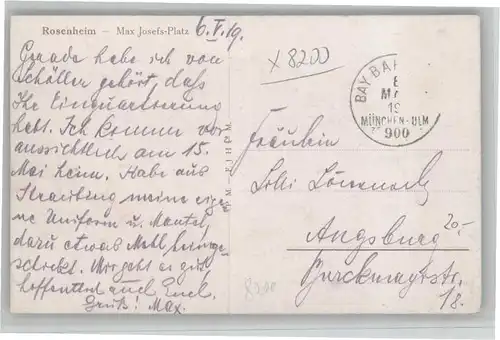 Rosenheim — Max Josefs-Platz 6.V.19.
Gerade habe ich von
Schöller gehört, daß
Ihr Einquartierung
habt. Ich komme vor-
aussichtlich am 15.
Mai heim. Habe aus
Straubing meine eige-
ne Uniform u. Mantel,
dazu etwas Mehl heimge-
schickt. Mir geht es gut,
hoffentlich auch Euch.
Gruß! Max.
X 8200
BAY. BA
MÜNCHEN-ULM
900
Fräulein
Augsburg
20,-
Burckmayrstr.
18.
8200